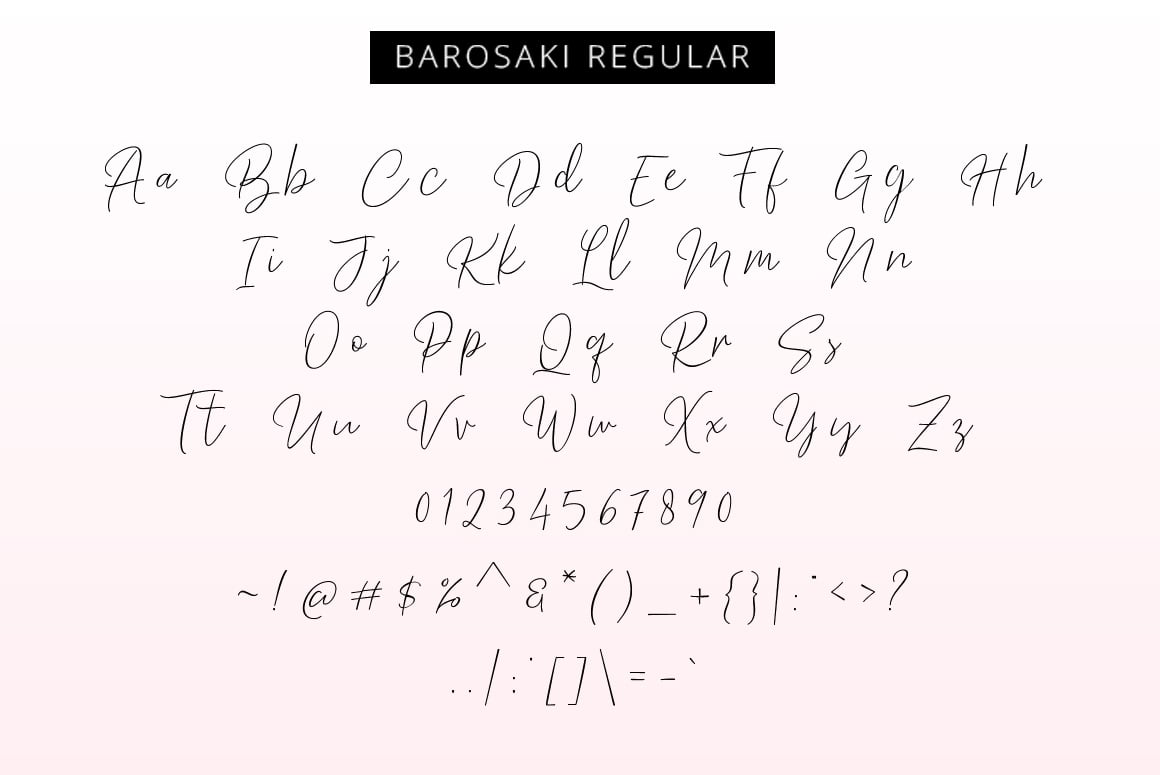 BAROSAKI REGULAR
Aa Bb Cc Dd Ee Ff Gg Hh
Ii Jj Kk Ll Mm Nn
Oo Pp Qq Rr Ss
Tt Uu Vv Ww Xx Yy Zz
01234567890
~!@#$%^&*()_+{}|:"<>?
../;'[]\=-`